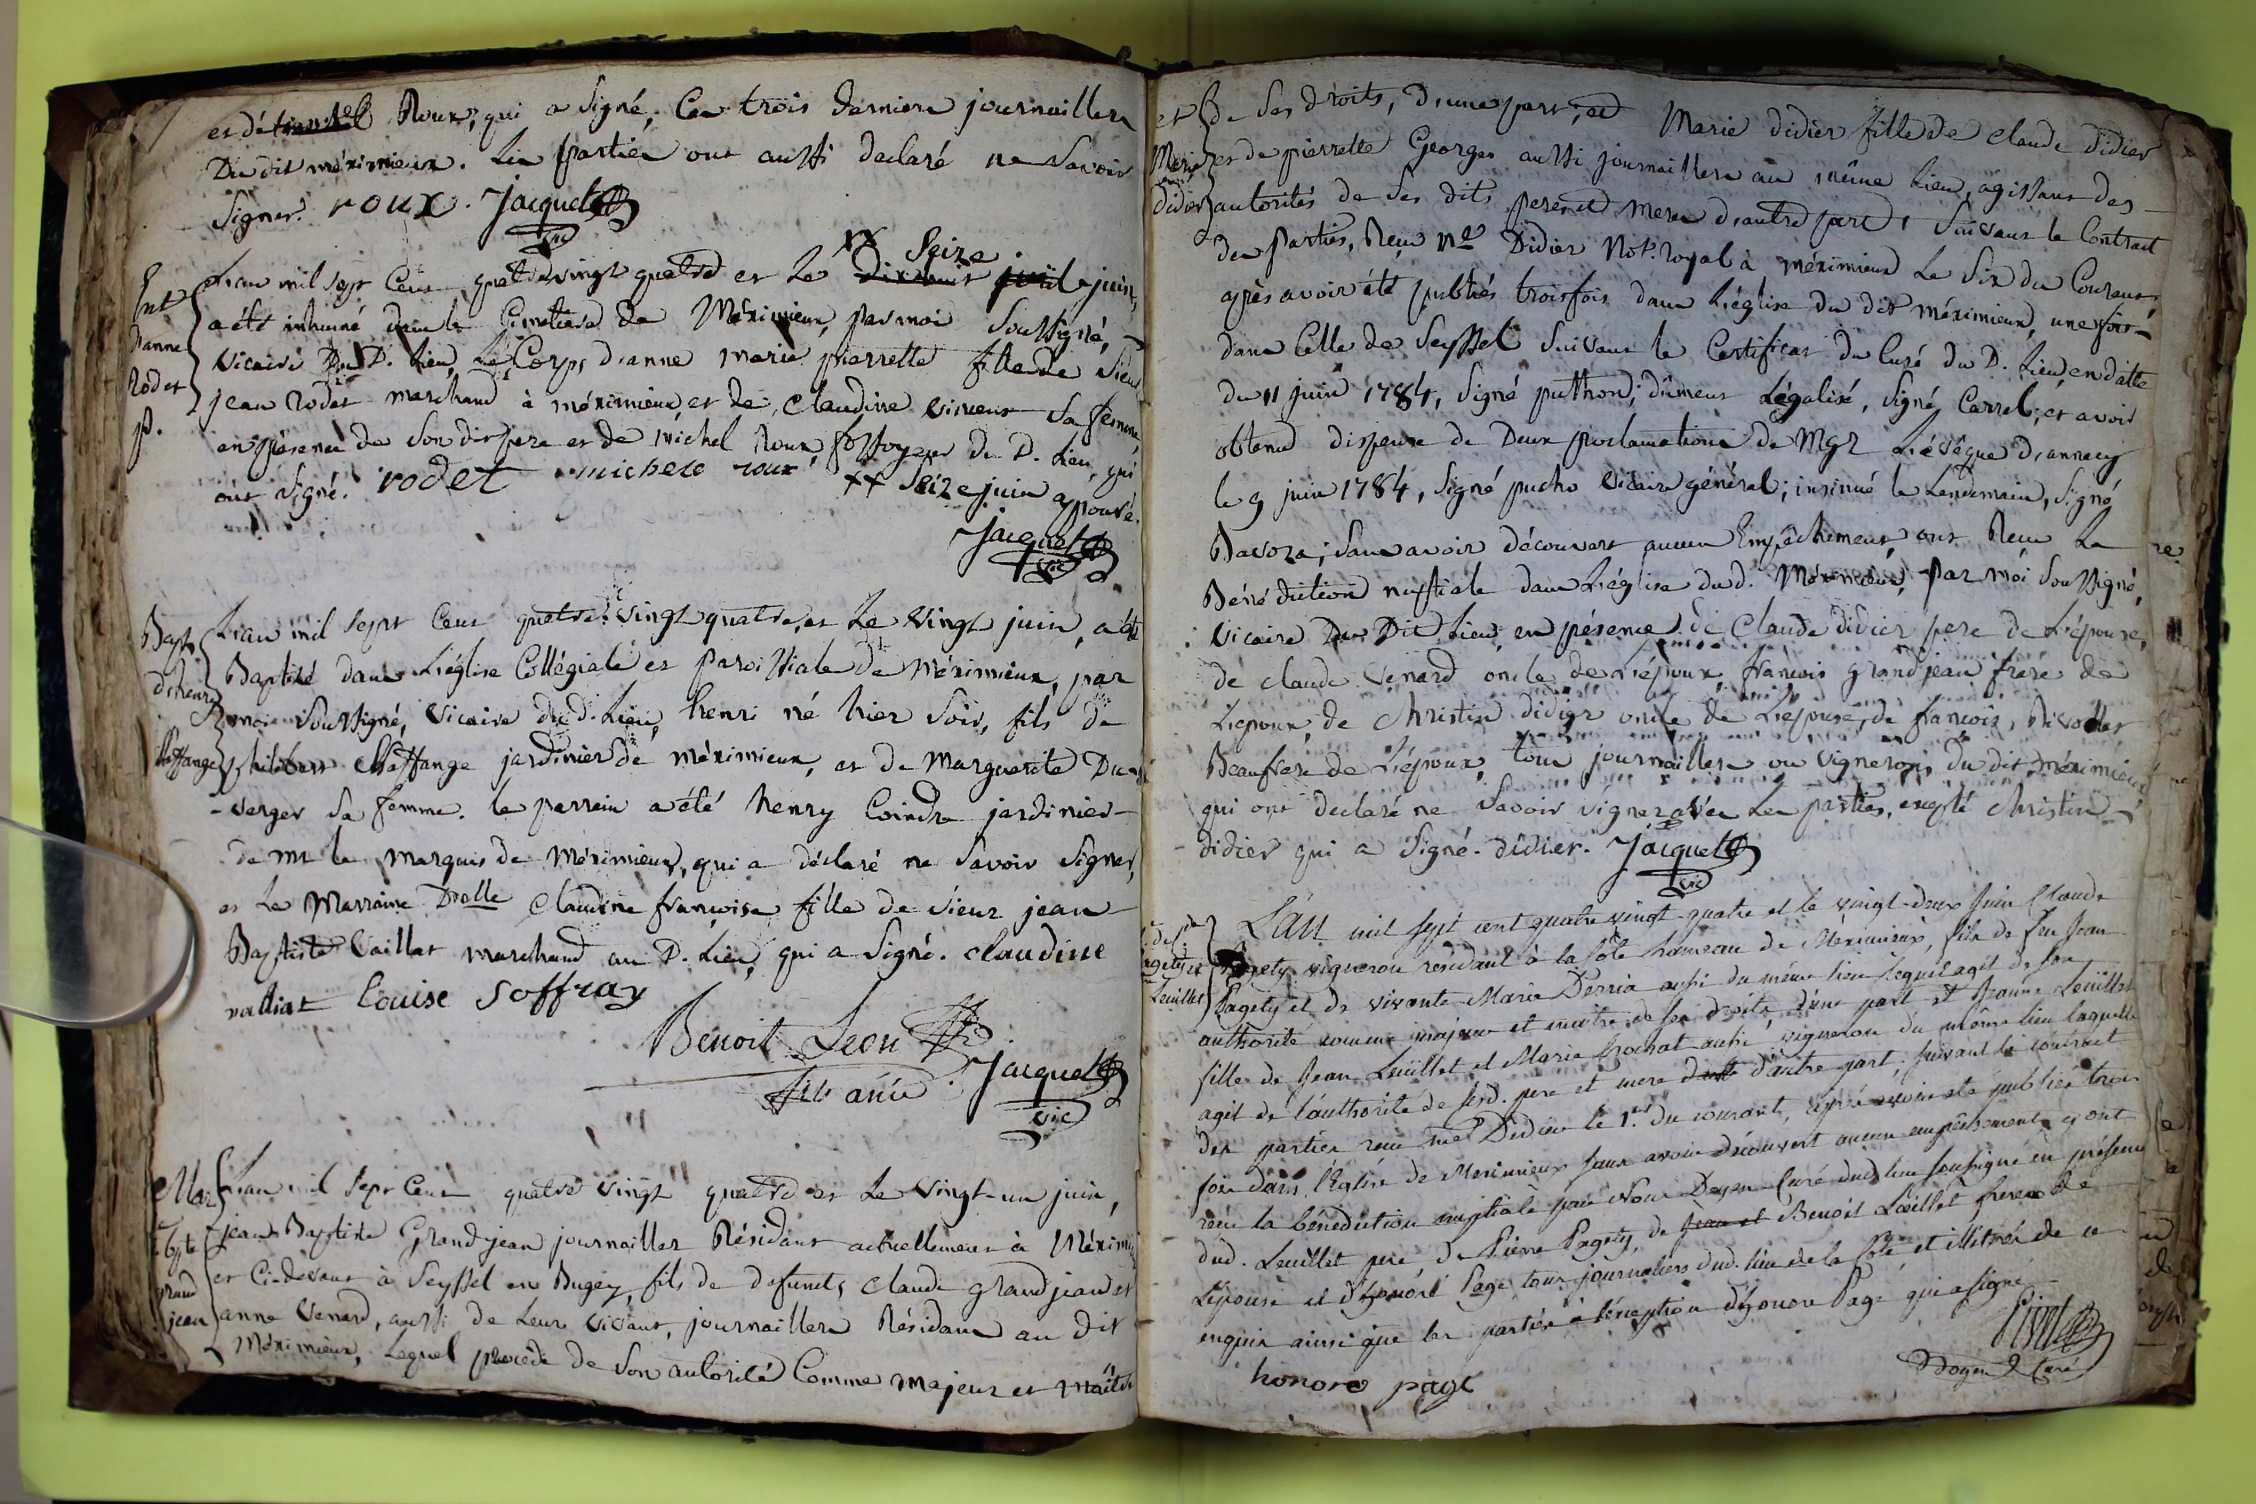 et de Roux, qui a signé, Ces trois derniers journailliers
Du dit méximieux. Les parties ont aussi declaré ne savoir
signer. roux. Jacquet
vic
Ent
d'anne
Rodet
p.
L'an mil sept Cent quatre vingt quatre et le xx Seize juin,
a été inhumé dans le Cimetiere de Méximieux, par moi soussigné,
vicaire Du D. Lieu, Le Corps d'anne marie pierrette fille de sieur
jean rodet marchand à méximieux, et de claudine vincent sa femme,
en présence de son dit pere et de michel Roux fossoyeur du D. Lieu, qui
ont signé. rodet michele roux xx Seize juin approuvé.
Jacquet
vic
Bapt.
d'henri
Chaffange
L'an mil sept Cent quatre vingt quatre, et Le vingt juin, a été
Baptisé dans L'église Collégiale et paroissiale de Méximieux, par
moi soussigné, vicaire du d. Lieu, henri né hier soir, fils de
philibert Chaffange jardinier de méximieux, et de Marguerite Du-
-verger sa femme. le parrein a été henry Coindre jardinier
de mr le marquis de Méximieux, qui a déclaré ne savoir signer,
et La Marraine Dlle Claudine françoise fille de sieur jean
Baptiste Caillat marchand au D. Lieu, qui a signé. claudine
Louise Soffray
Benoit Leon
Jacquet
vic
Mar.
j. bpte
grand
jean
L'an mil sept Cent quatre vingt quatre et Le vingt-un juin,
jean Baptiste Grandjean journaillier Résidant actuellement à Méximieux
et Ci-devant à Seyssel en Bugey, fils de defunts claude grandjean et
anne venard, aussi de Leur vivant, journailliers Résidans au dit
Méximieux, Lequel procède de son autorité Comme majeur et maître
et
Marie
didier
de ses droits, d'une part; et Marie didier fille de claude didier
et de pierrette Georges aussi journailliers au même Lieu, agissant des
autorités de ses dits peres et mere d'autre part, Suivant le Contract
des parties, Reçu Me Didier Not. royal à méximieux Le Six du Courant,
après avoir été publiés trois fois dans L'église du dit méximieux, une fois
dans Celle de Seyssel Suivant le Certificat du Curé du D. Lieu en datte
du 11 juin 1784, signé puthod, dûment Légalisé, signé Carrel; et avoir
obtenu dispense de Deux proclamations de Mgr L'évêque d'annecy
le 9 juin 1784, signé vicaire général; insinué le Lendemain, signé
sans avoir découvert aucun Empêchement, ont Reçu La
Bénédiction nuptiale dans L'église du d. Méximieux, par moi soussigné,
vicaire Du Dit Lieu, en présence de Claude didier pere de L'épouse,
de claude venard oncle de L'époux, françois grandjean frère de
L'époux, de Christin didier oncle de L'épouse, de françois
Beaufrere de L'époux, tous journailliers ou vignerons, du dit méximieux
qui ont declaré ne savoir signer avec Les parties, excepté christin
didier qui a signé. didier. Jacquet
vic
Leüillet
L'an mil sept cent quatre vingt quatre et le vingt-deux Juin Claude
Pagety vigneron residant à la Côte hameau de Meximieux, fils de feu Jean
Pagety et de vivante Marie Perria aussi du même lieu lequel agit de son
authorité comme majeur et maitre de ses droits, d'une part et Jeanne Leüillet
fille de Jean Leüillet et Marie Crochat aussi vigneron du même lieu laquelle
agit de l'authorité de sesd. pere et mere d'autre part; suivant le contract
des parties reçu me Didier le 1er du courant, après avoir été publiés trois
fois dans l'Eglise de Meximieux sans avoir découvert aucun empêchement, y ont
reçu la bénédiction nuptiale par Nous Doyen Curé dud. lieu soussigné en présence
dud. Leüillet pere, de Pierre Pagety, de Jean et Benoit Leüillet freres de
L'épouse et d'honoré Page tous journaliers dud. lieu de la Côte, et illitérés de ce
enquis ainsi que les parties à l'exception d'honoré Page qui a signé
Doyen & Curé
honore page